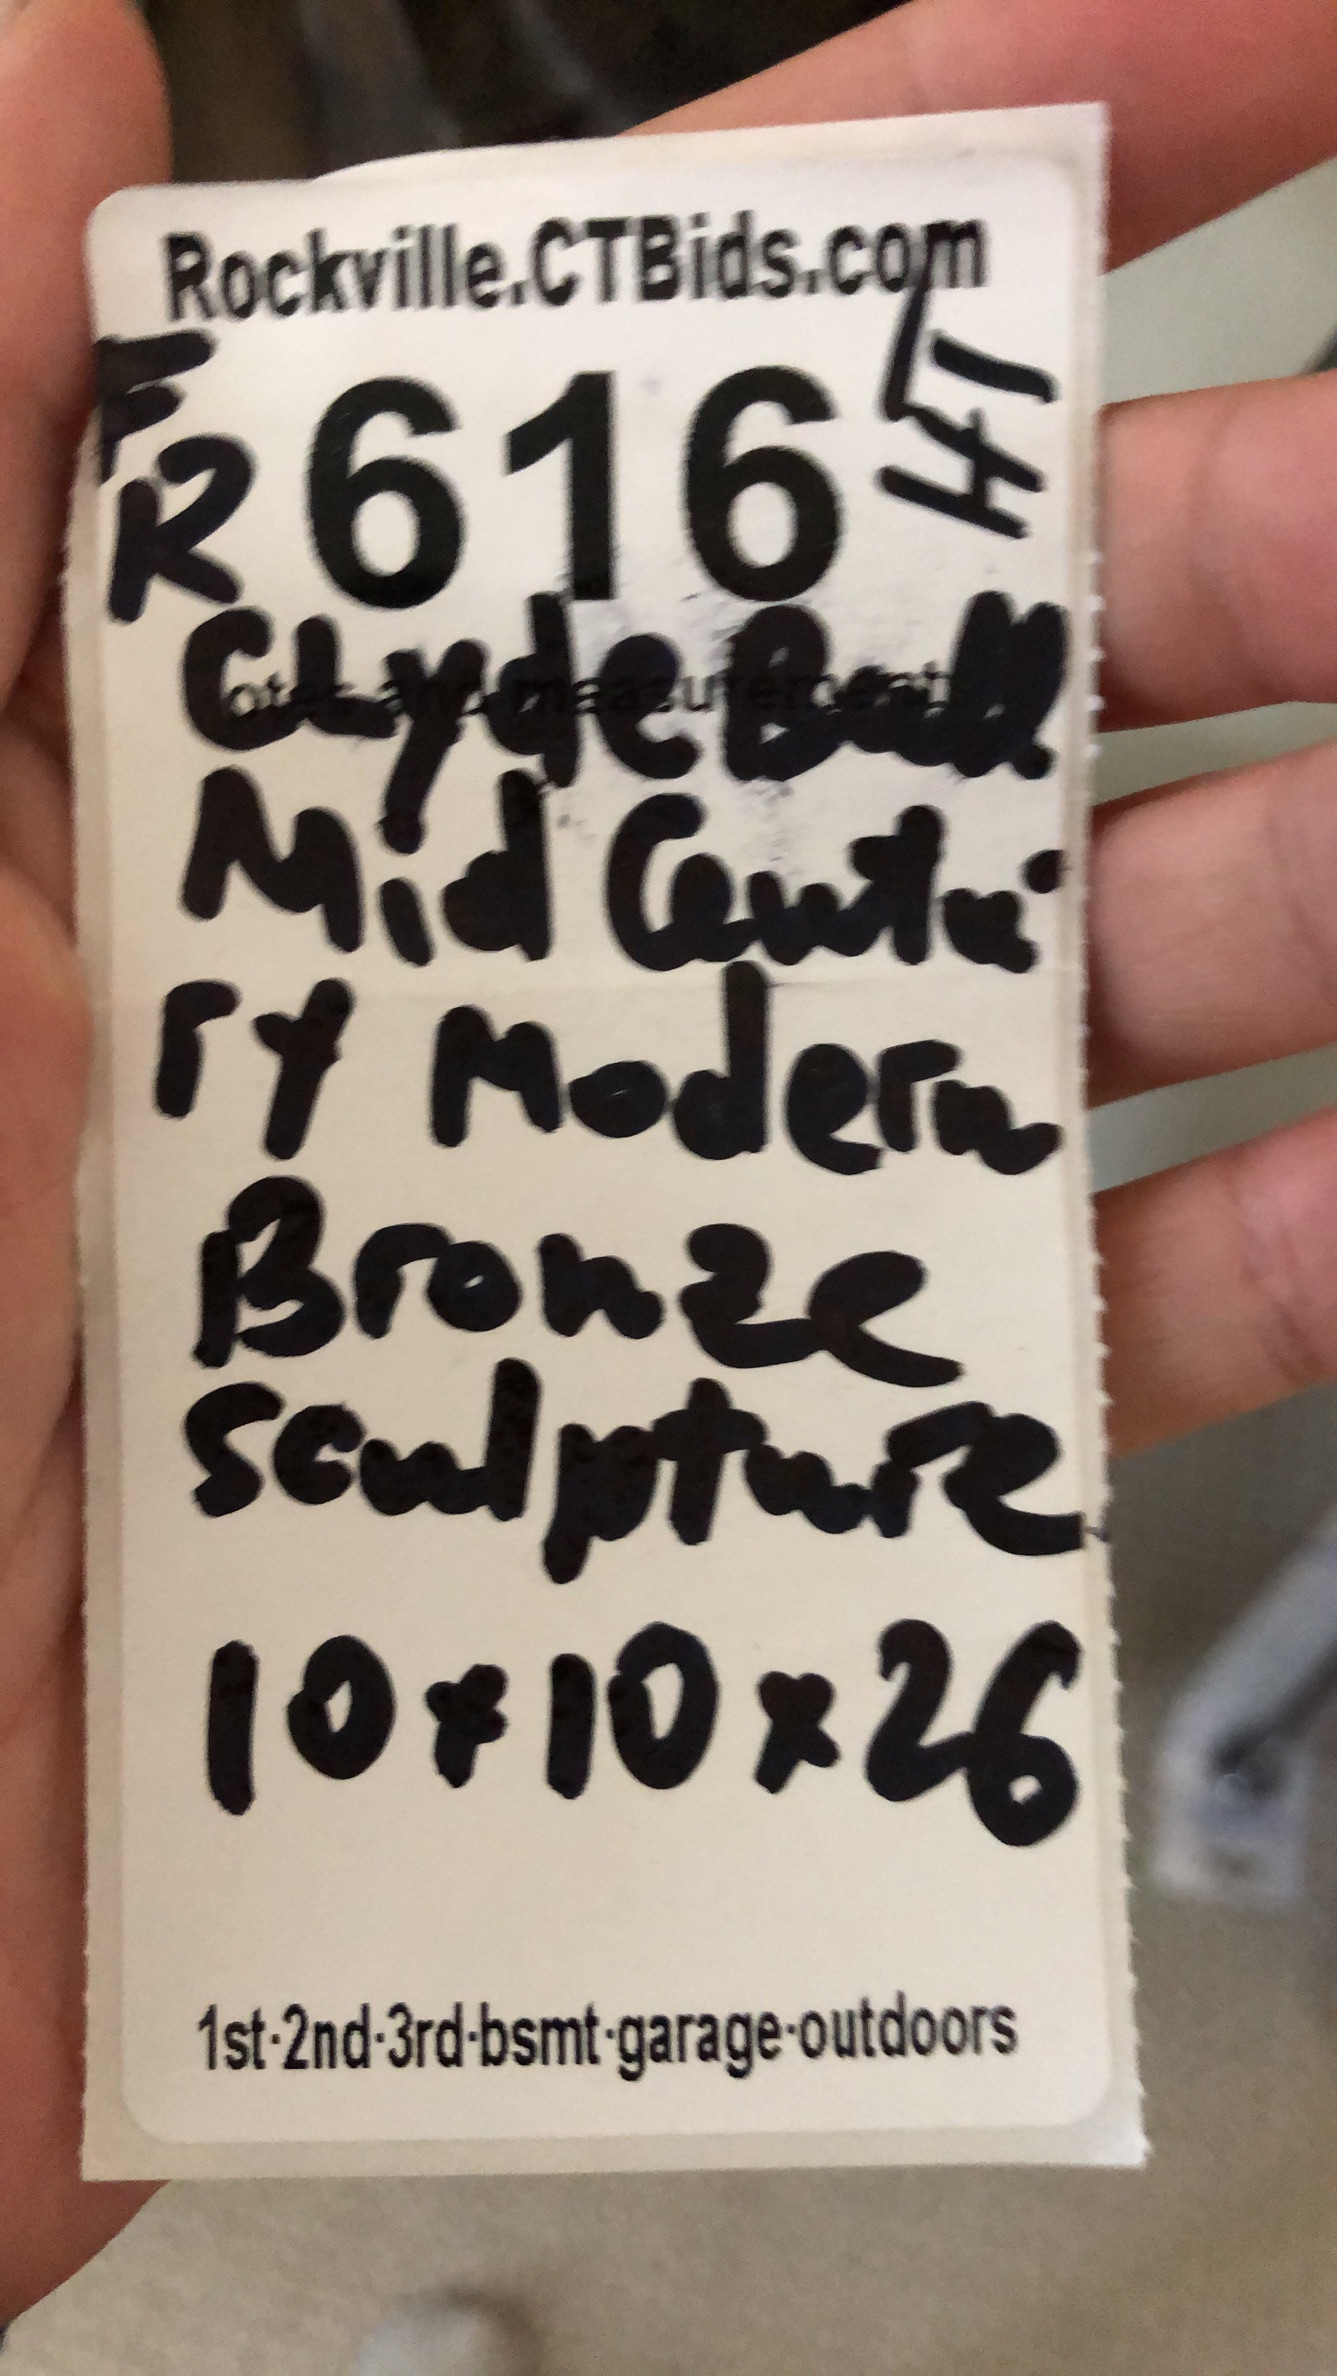 Rockville.CTBids.com
FR 616 LH1
Clyde Ball
Notes and measurements
Mid Centu
ry Modern
Bronze
Sculpture
10x10x26
1st·2nd·3rd·bsmt·garage·outdoors